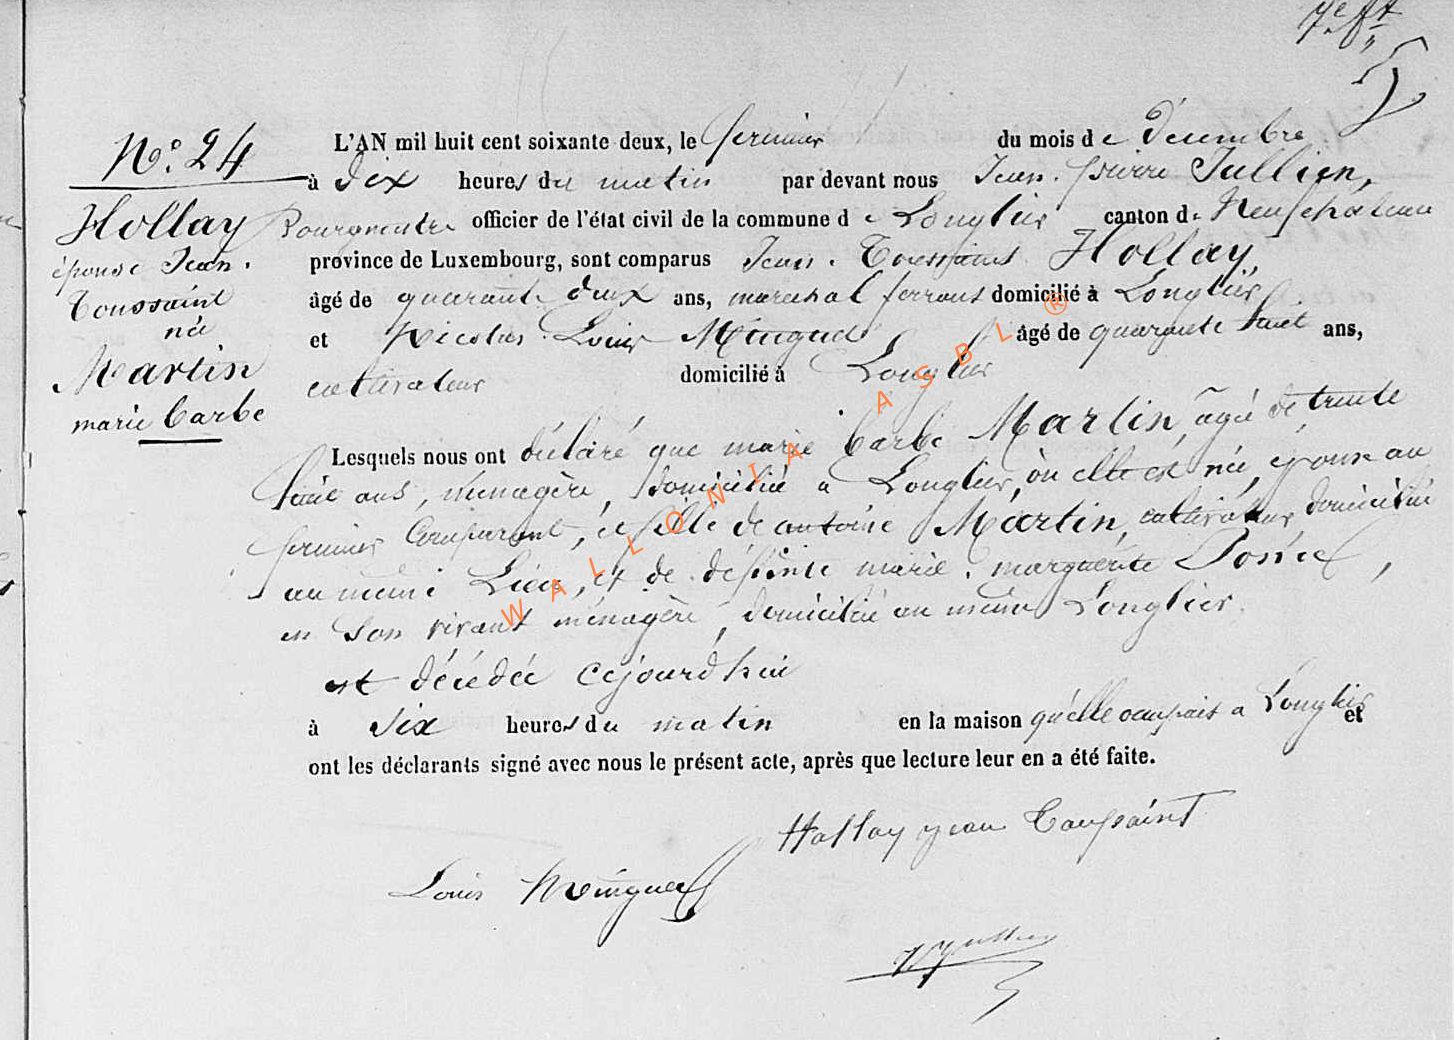 7e ft
5
No. 24
Hollay
épouse Jean.
Toussaint
née
Martin
marie barbe
L'AN mil huit cent soixante deux, le premier du mois de Décembre
à dix heures du matin par devant nous Jean. pierre Jullien,
Bourgmestre officier de l'état civil de la commune de Longlier canton de Neufchateau
province de Luxembourg, sont comparus Jean. Toussaint Hollay,
âgé de quarante deux ans, marechal ferrant domicilié à Longlier,
et Nicolas Louis Minguet âgé de quarante huit ans,
cultivateur domicilié à Longlier
Lesquels nous ont déclaré que marie barbe Martin, âgée de trente
huit ans, ménagère, domiciliée a Longlier, où elle est née, épouse au
premier Comparant, et fille de antoine Martin, cultivateur domicilié
au même Lieu, et de défunte marie. marguerite Poncé,
en son vivant ménagère, domiciliée au même Longlier.
est décédée cejourd'hui
à six heures du matin en la maison qu'elle occupait a Longlier et
ont les déclarants signé avec nous le présent acte, après que lecture leur en a été faite.
Hollay jean Toussaint
Louis Minguet
WALLONIA ASBL ®